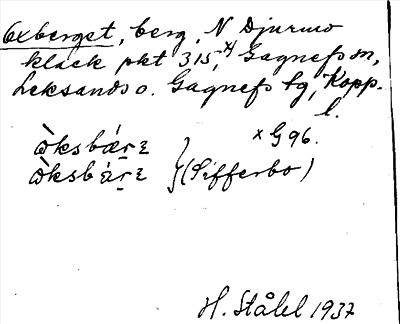 Oxberget, berg, N Djurmo
klack pkt 315,ˣ⁾ Gagnefs sn,
Leksands o. Gagnefs tg, Kopp.
l.
x G 96.
ò̀ksbǽrɛ
ò̀ksbá̀rɛ } (Sifferbo)
H. Ståhl 1937